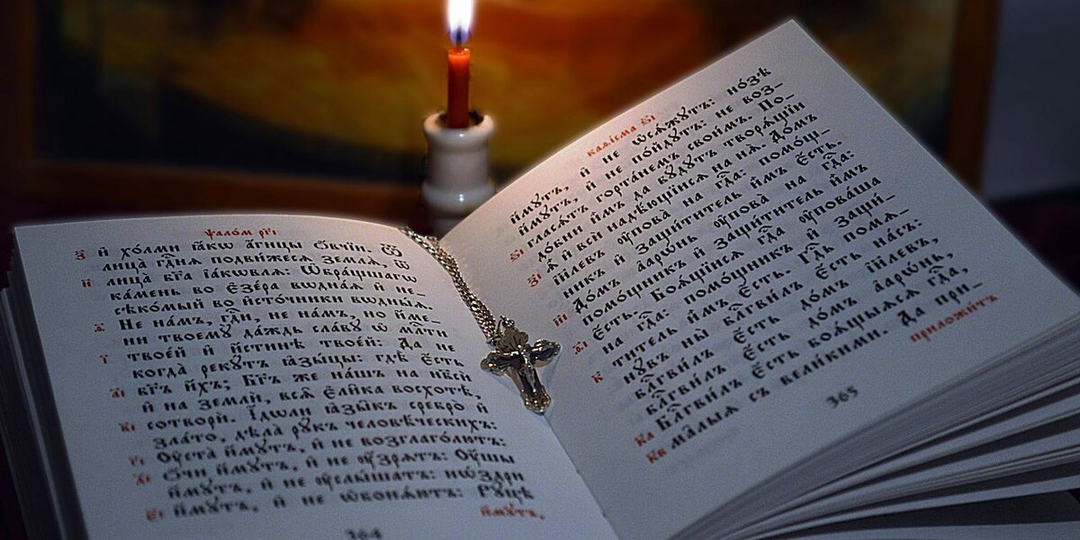 Ѱало́мъ рг҃і
ѕ҃ и҆ хо́лми ꙗ҆́кѡ а҆́гнцы ѻ҆́вчїи. Ѿ
лица̀ гдⷭ҇нѧ подви́жесѧ землѧ̀, ѿ
и҃ лица̀ бг҃а і҆а́кѡвлѧ: Ѡ҆бра́щшагѡ
ка́мень во є҆зе́ра вѡдна̑ѧ и҆ не-
сѣко́мый во и҆сто́чники вѡдны̑ѧ.
ѳ҃ Не на́мъ, гдⷭ҇и, не на́мъ, но и҆́ме-
ни твоемꙋ̀ да́ждь сла́вꙋ ѡ҆ млⷭ҇ти
і҃ твое́й и҆ и҆́стинѣ твое́й: Да не
когда̀ рекꙋ́тъ ꙗ҆зы́цы: гдѣ̀ є҆́сть
а҃і бг҃ъ и҆́хъ; Бг҃ъ же на́шъ на нб҃сѝ
и҆ на землѝ, всѧ̑ є҆ли̑ка восхотѣ̀,
в҃і сотворѝ. І҆́дѡли ꙗ҆зы̑къ сребро̀ и҆
зла́то, дѣла̀ рꙋ́къ человѣ́ческихъ:
г҃і Оу҆ста̀ и҆́мꙋтъ, и҆ не возглаго́лютъ:
д҃і Ѻ҆́чи и҆́мꙋтъ, и҆ не ᲂу҆́зрѧтъ: Оу҆́шы
и҆́мꙋтъ, и҆ не ᲂу҆слы́шатъ: нѡ́здри
є҃і и҆́мꙋтъ, и҆ не ѡ҆бонѧ́ютъ: Рꙋ́цѣ
и҆́мꙋтъ,
364
каѳі́сма з҃і
и҆́мꙋтъ, и҆ не ѡ҆сѧ́жꙋтъ: но́зѣ
и҆́мꙋтъ, и҆ не по́йдꙋтъ: не воз-
гласѧ́тъ горта́немъ свои́мъ. По-
ѕ҃і до́бни и҆̀мъ да бꙋ́дꙋтъ творѧ́щїи
ѧ҆̀ и҆ всѝ надѣ́ющїисѧ на нѧ̀. До́мъ
з҃і і҆и҃левъ ᲂу҆пова̀ на гдⷭ҇а: помо́щ-
никъ и҆ защи́титель и҆̀мъ є҆́сть.
и҃і До́мъ а҆арѡ́нь ᲂу҆пова̀ на гдⷭ҇а:
помо́щникъ и҆ защи́титель и҆̀мъ
ѳ҃і є҆́сть. Боѧ́щїисѧ гдⷭ҇а ᲂу҆пова́ша
на гдⷭ҇а: помо́щникъ и҆ защи́-
к҃ титель и҆̀мъ є҆́сть. Гдⷭ҇ь помѧ-
нꙋ́въ ны̀ блгⷭ҇ви́лъ є҆́сть на́съ:
блгⷭ҇ви́лъ є҆́сть до́мъ і҆и҃левъ,
блгⷭ҇ви́лъ є҆́сть до́мъ а҆арѡ́нь,
к҃а Блгⷭ҇ви́лъ є҆́сть боѧ́щыѧсѧ гдⷭ҇а,
к҃в ма̑лыѧ съ вели́кими. Да при-
приложи́тъ
365